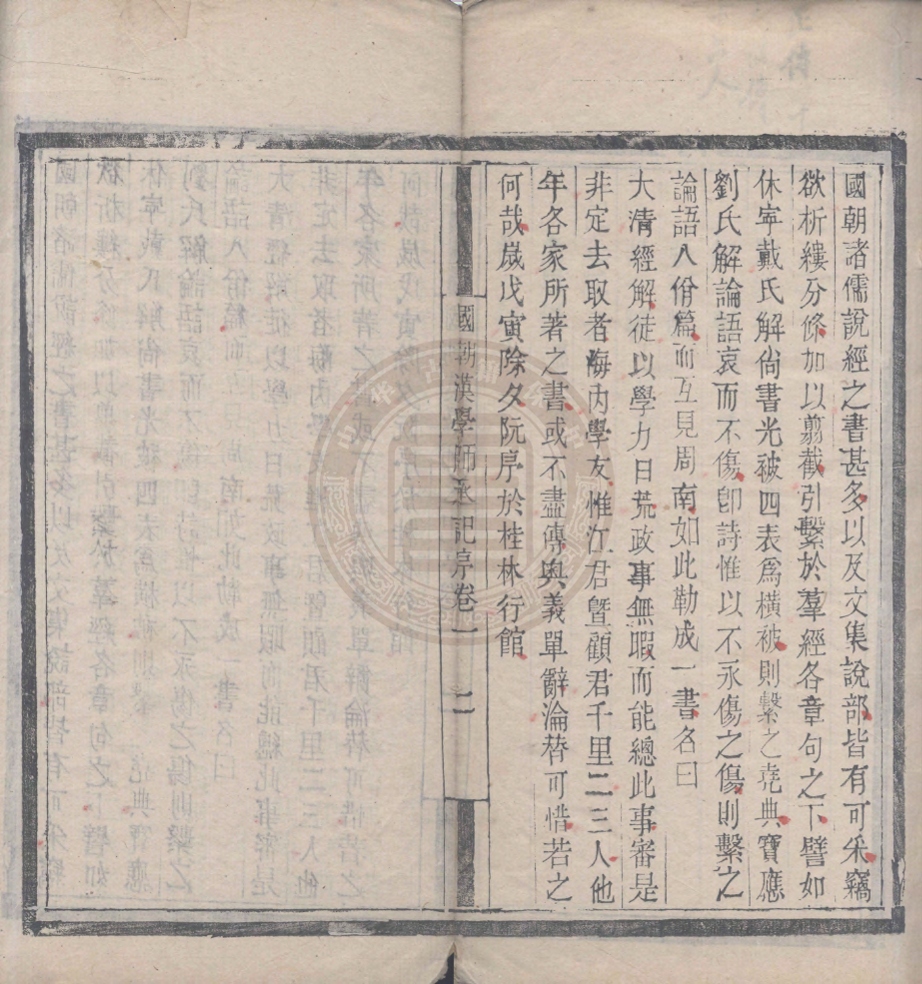 國朝諸儒說經之書甚多以及文集說部皆有可采竊
欲析縷分條加以翦截引繫於羣經各章句之下譬如
休寧戴氏解尙書光被四表爲橫被則繫之堯典寶應
劉氏解論語哀而不傷卽詩惟以不永傷之傷則繫之
論語八佾篇而互見周南如此勒成一書名曰
大清經解徒以學力日荒政事無暇而能總此事審是
非定去取者海內學友惟江君曁顧君千里二三人他
年各家所著之書或不盡傳奧義單辭淪替可惜若之
何哉嵗戊寅除夕阮序於桂林行館
國朝漢學師承記序卷一 二